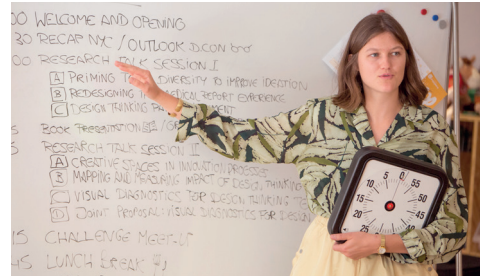 00 WELCOME AND OPENING
30 RECAP NYC / OUTLOOK D.CON
00 RESEARCH TALK SESSION I
A PRIMING DIVERSITY TO IMPROVE IDEATION
B REDESIGNING MEDICAL REPORT EXPERIENCE
C DESIGN THINKING
BOOK PRESENTATION
RESEARCH TALK SESSION II
A CREATIVE SPACES IN INNOVATION PROCESSES
B MAPPING AND MEASURING IMPACT OF DESIGN THINKING
C VISUAL DIAGNOSTICS FOR DESIGN THINKING
D JOINT PROPOSAL: VISUAL DIAGNOSTICS FOR DESIGN
15 CHALLENGE MEET-UP
45 LUNCH BREAK
0
5
10
15
20
25
30
35
40
45
50
55